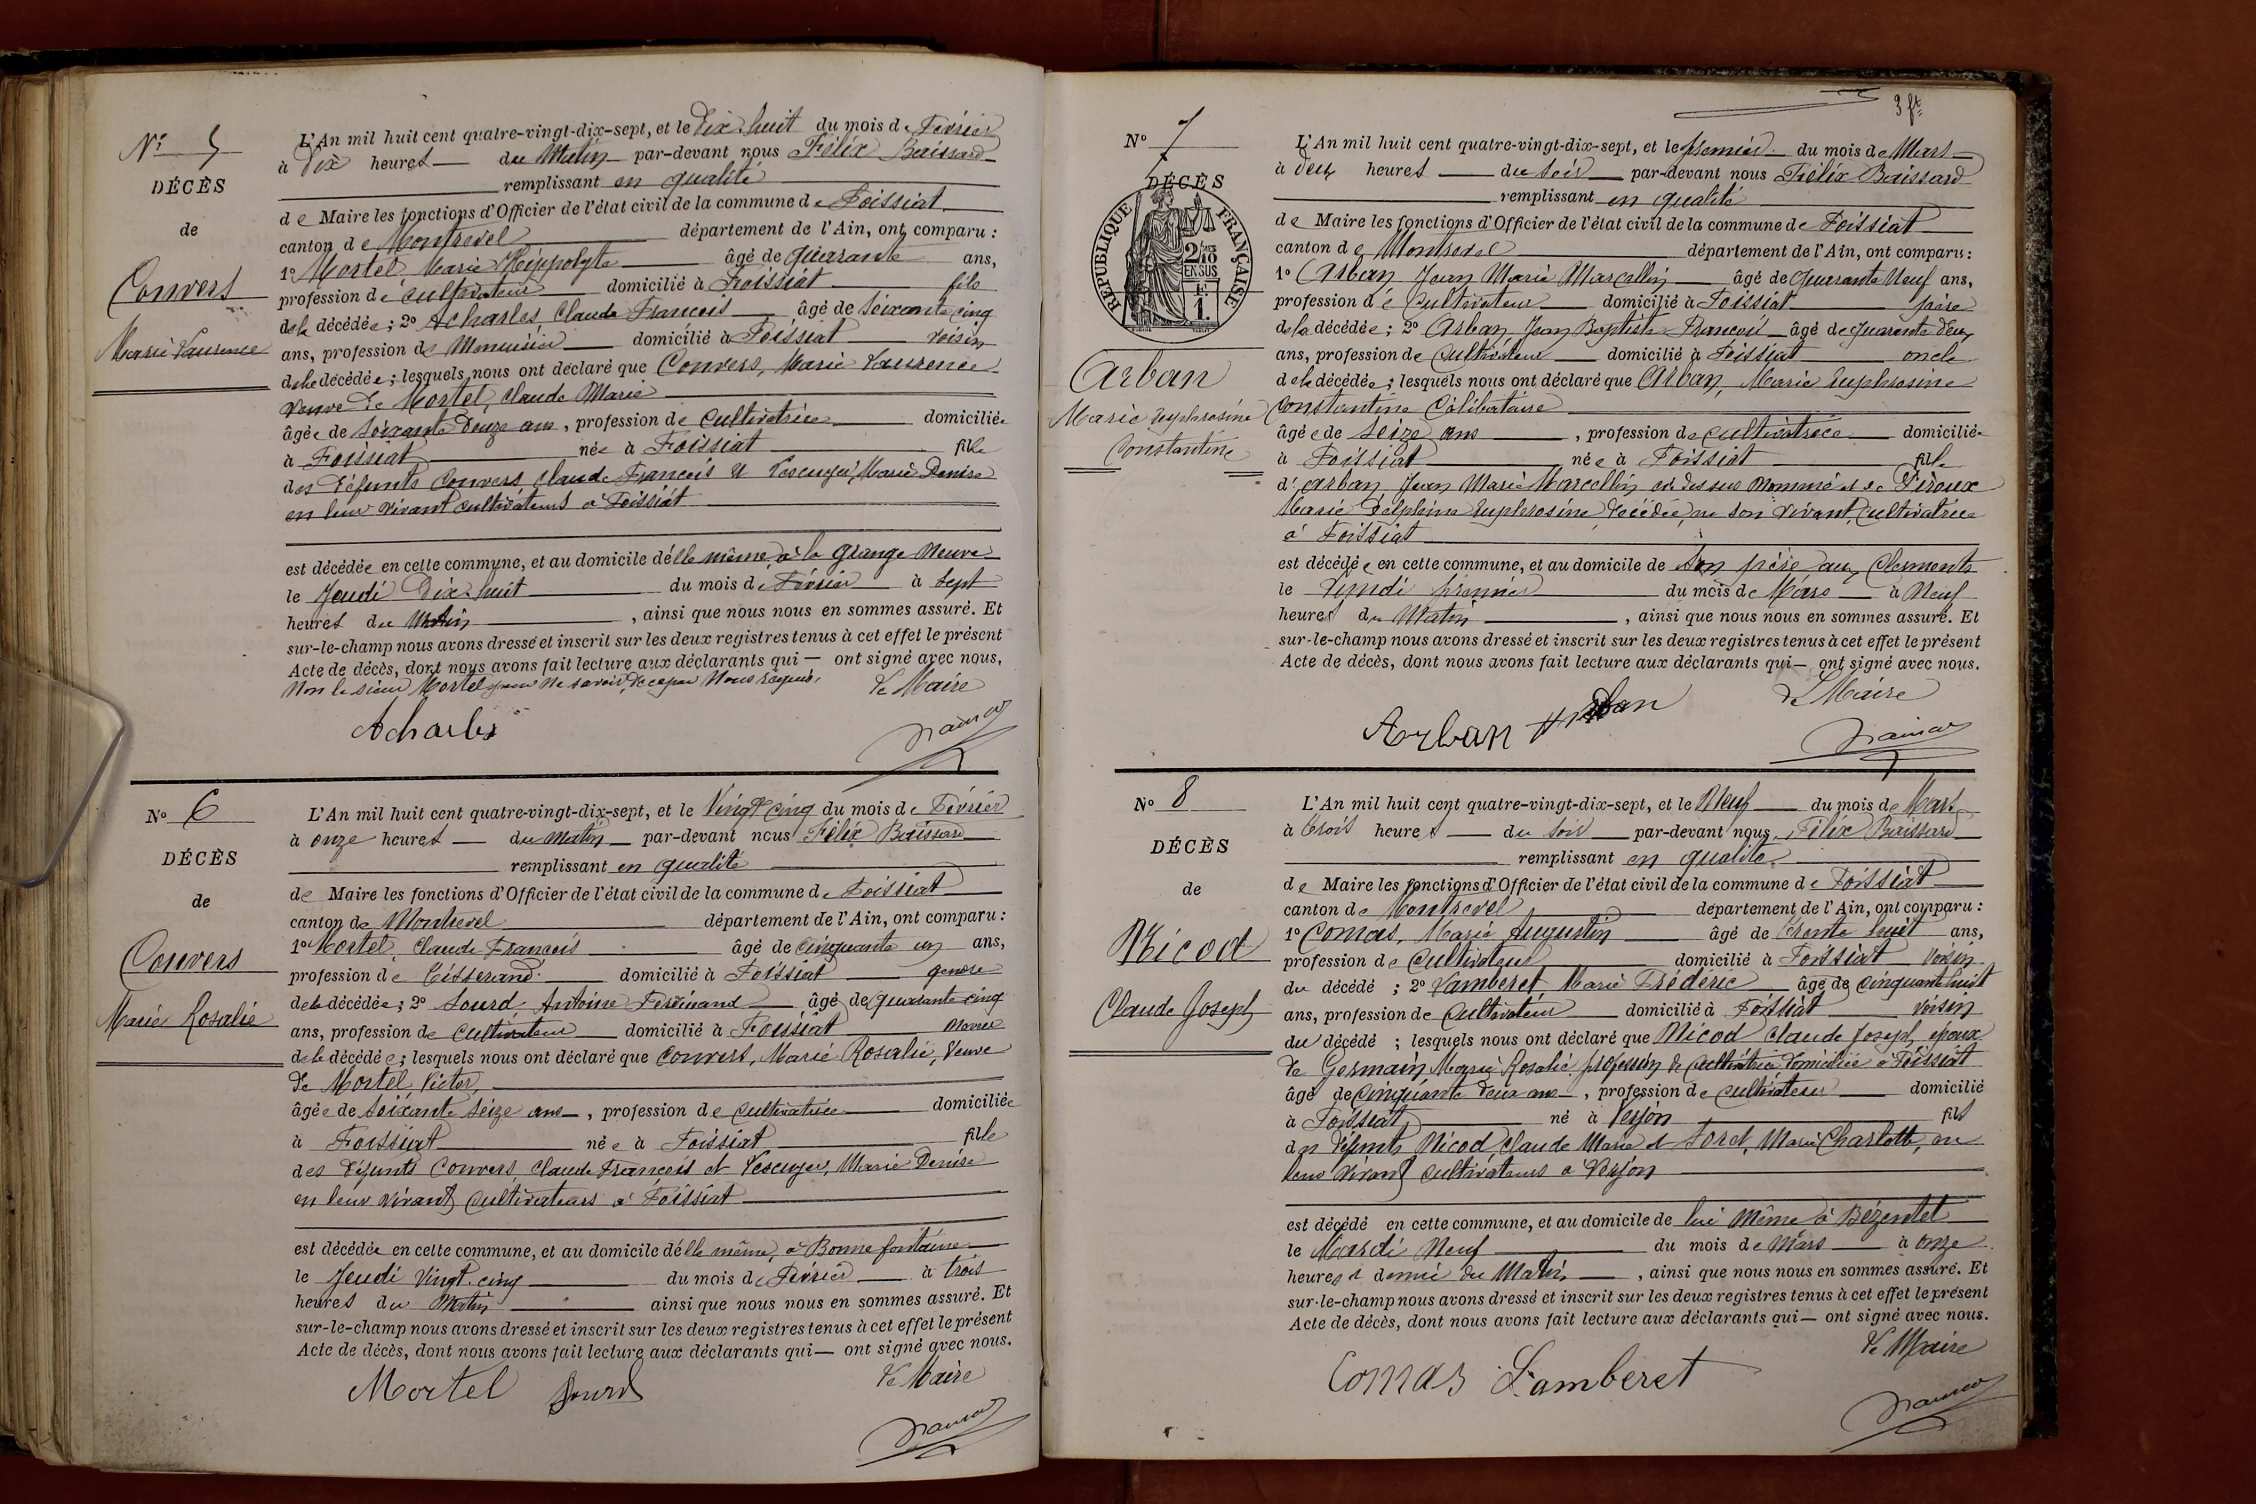 N° 5
DÉCÈS
de
Convers
Marie Laurence
L'An mil huit cent quatre-vingt-dix-sept, et le Dix huit du mois de Février
à Dix heures du Matin par-devant nous Félix Baissard
remplissant en qualité
de Maire les fonctions d'Officier de l'état civil de la commune de Foissiat
canton de Montrevel département de l'Ain, ont comparu :
1° Mortel, Marie Hippolyte âgé de quarante ans,
profession de cultivateur domicilié à Foissiat fils
de la décédée ; 2° Acharles, Claude François âgé de soixante cinq
ans, profession de Menuisier domicilié à Foissiat voisin
de la décédée ; lesquels nous ont déclaré que Convers, Marie Laurence
veuve de Mortel, Claude Marie
âgée de soixante douze ans, profession de cultivatrice domiciliée
à Foissiat née à Foissiat fille
des défunts Convers, Claude François et Lescuyer, Marie Denise
en leur vivant cultivateurs à Foissiat
est décédée en cette commune, et au domicile d'elle même, à la grange Neuve
le Jeudi Dix huit du mois de Février à sept
heures du Matin, ainsi que nous nous en sommes assuré. Et
sur-le-champ nous avons dressé et inscrit sur les deux registres tenus à cet effet le présent
Acte de décès, dont nous avons fait lecture aux déclarants qui — ont signé avec nous,
Non le sieur Mortel pour ne savoir, de ce par nous requis. Le Maire
Acharles
N° 6
DÉCÈS
de
Convers
Marie Rosalie
L'An mil huit cent quatre-vingt-dix-sept, et le Vingt cinq du mois de Février
à onze heures du Matin par-devant nous Félix Baissard
remplissant en qualité
de Maire les fonctions d'Officier de l'état civil de la commune de Foissiat
canton de Montrevel département de l'Ain, ont comparu :
1° Mortel, Claude François âgé de cinquante un ans,
profession de Tisserand domicilié à Foissiat gendre
de la décédée ; 2° Sourd, Antoine Ferdinand âgé de quarante cinq
ans, profession de cultivateur domicilié à Foissiat neveu
de la décédée ; lesquels nous ont déclaré que Convers, Marie Rosalie, Veuve
de Mortel Victor,
âgée de soixante seize ans, profession de cultivatrice domiciliée
à Foissiat née à Foissiat fille
des défunts Convers, Claude François et Lescuyer, Marie Denise
en leur vivant cultivateurs à Foissiat
est décédée en cette commune, et au domicile d'elle même, à Bonne fontaine
le Jeudi Vingt cinq du mois de Février à trois
heures du Matin ainsi que nous nous en sommes assuré. Et
sur-le-champ nous avons dressé et inscrit sur les deux registres tenus à cet effet le présent
Acte de décès, dont nous avons fait lecture aux déclarants qui — ont signé avec nous.
Le Maire
Mortel Sourd
3 ft
N° 7
DÉCÈS
RÉPUBLIQUE FRANÇAISE
2/10
EN SUS
1
Arban
Marie Euphrosine
Constantine
L'An mil huit cent quatre-vingt-dix-sept, et le premier du mois de Mars
à deux heures du soir par-devant nous Félix Baissard
remplissant en qualité
de Maire les fonctions d'Officier de l'état civil de la commune de Foissiat
canton de Montrevel département de l'Ain, ont comparu :
1° Arban, Jean Marie Marcellin âgé de quarante Neuf ans,
profession de cultivateur domicilié à Foissiat père
de la décédée ; 2° Arban, Jean Baptiste François âgé de quarante deux
ans, profession de cultivateur domicilié à Foissiat oncle
de la décédée ; lesquels nous ont déclaré que Arban, Marie Euphrosine
Constantine Célibataire
âgée de seize ans, profession de cultivatrice domiciliée
à Foissiat née à Foissiat fille
d'Arban, Jean Marie Marcellin ci dessus nommé et de Piroux
Marie Delphine Euphrosine décédée, en son vivant, cultivatrice
à Foissiat
est décédée en cette commune, et au domicile de son père aux Clements
le Lundi premier du mois de Mars à Neuf
heures du Matin, ainsi que nous nous en sommes assuré. Et
sur-le-champ nous avons dressé et inscrit sur les deux registres tenus à cet effet le présent
Acte de décès, dont nous avons fait lecture aux déclarants qui — ont signé avec nous.
Le Maire
Arban Arban
N° 8
DÉCÈS
de
Nicod
Claude Joseph
L'An mil huit cent quatre-vingt-dix-sept, et le Neuf du mois de Mars
à trois heures du soir par-devant nous Félix Baissard
remplissant en qualité
de Maire les fonctions d'Officier de l'état civil de la commune de Foissiat
canton de Montrevel département de l'Ain, ont comparu :
1° Comas, Marie Augustin âgé de trente huit ans,
profession de cultivateur domicilié à Foissiat voisin
du décédé ; 2° Lamberet Marie Frédéric âgé de cinquante huit
ans, profession de cultivateur domicilié à Foissiat voisin
du décédé ; lesquels nous ont déclaré que Nicod Claude Joseph, époux
de Germain, Marie Rosalie profession de cultivatrice domiciliée à Foissiat
âgé de cinquante deux ans, profession de cultivateur domicilié
à Foissiat né à Verjon fils
des défunts Nicod, Claude Marie et Foret, Marie Charlotte, en
leur vivant cultivateurs à Verjon
est décédé en cette commune, et au domicile de lui même à Bézentet
le Mardi Neuf du mois de Mars à onze
heures et demie du Matin, ainsi que nous nous en sommes assuré. Et
sur-le-champ nous avons dressé et inscrit sur les deux registres tenus à cet effet le présent
Acte de décès, dont nous avons fait lecture aux déclarants qui — ont signé avec nous.
Le Maire
Comas Lamberet